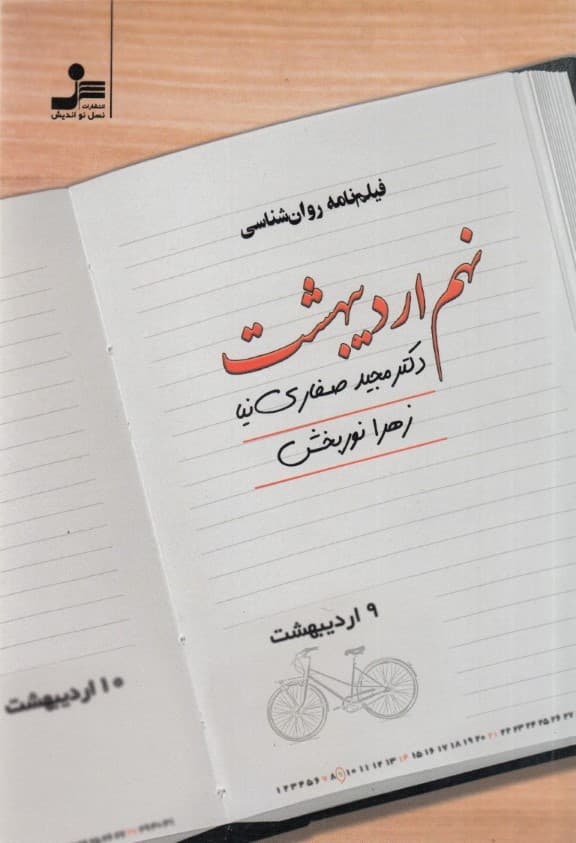 انتشارات
نسل نواندیش
فیلم‌نامه روان‌شناسی
نهم اردیبهشت
دکتر مجید صفاری‌نیا
زهرا نوربخش
۹ اردیبهشت
۱۰ اردیبهشت
۱ ۲ ۳ ۴ ۵ ۶ ۷ ۸ ۹ ۱۰ ۱۱ ۱۲ ۱۳ ۱۴ ۱۵ ۱۶ ۱۷ ۱۸ ۱۹ ۲۰ ۲۱ ۲۲ ۲۳ ۲۴ ۲۵ ۲۶ ۲۷